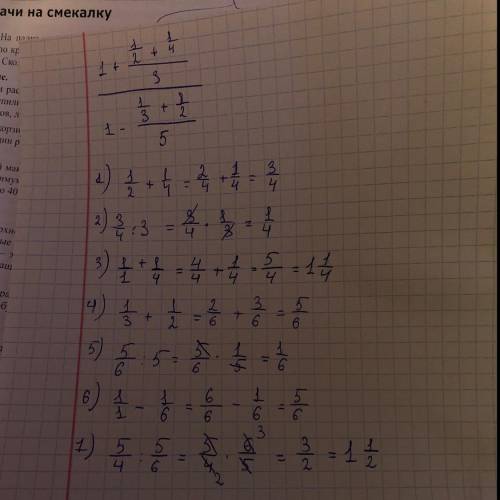 ачи на смекалку
1 + (1/2 + 1/4)/3
1 - (1/3 + 1/2)/5
1) 1/2 + 1/4 = 2/4 + 1/4 = 3/4
2) 3/4 : 3 = 3/4 · 1/3 = 1/4
3) 1/1 + 1/4 = 4/4 + 1/4 = 5/4 = 1 1/4
4) 1/3 + 1/2 = 2/6 + 3/6 = 5/6
5) 5/6 : 5 = 5/6 · 1/5 = 1/6
6) 1/1 - 1/6 = 6/6 - 1/6 = 5/6
7) 5/4 : 5/6 = 5/4 2 · 6/5 3 = 3/2 = 1 1/2